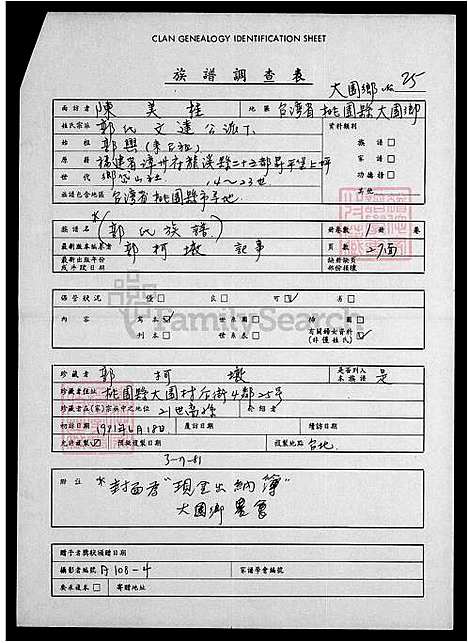 CLAN GENEALOGY IDENTIFICATION SHEET
族譜調查表
大園鄉 № 25
面訪者 陳美桂 地區 台灣省桃園縣大園鄉
姓氏宗派 郭氏文達公派下 資料類別
始祖 郭興 族譜□
原籍 福建省漳州府龍溪縣二十五都昇平堡上坪 家譜□
世代 鄉岱山社 14~23世 功德榜□
族譜包含地區 台灣省桃園縣市等地 其他
族譜名 *(郭氏族譜) 冊卷數 1 冊 卷
最新版本編纂者 郭柯墩 記事 頁數 27面
最新出版年份或手抄日期 缺冊缺頁部份條號
保管狀況 優□ 良□ 可☑ 劣□
內容 寫本☑ 世系圖□ 插圖□
刊本□ 世系表□ 有關婦女資料(非僅姓氏)☑
FamilySearch
珍藏者 郭柯墩 是否列入本族譜 是
珍藏者住址 桃園縣大園村后街4鄰25号
珍藏者在(家)宗族中之地位 21世裔孫 介紹者
初訪日期 1991年6月18日 覆訪日期 續訪日期
允許複製☑ 預擬複製日期 複製地點 台北
3-7-81
附註 *封面看"現金出納簿"
大園鄉農會
贈予者獎狀頒贈日期
攝影者編號 A108-4 家譜學會編號
要求複本□ 寄贈地址